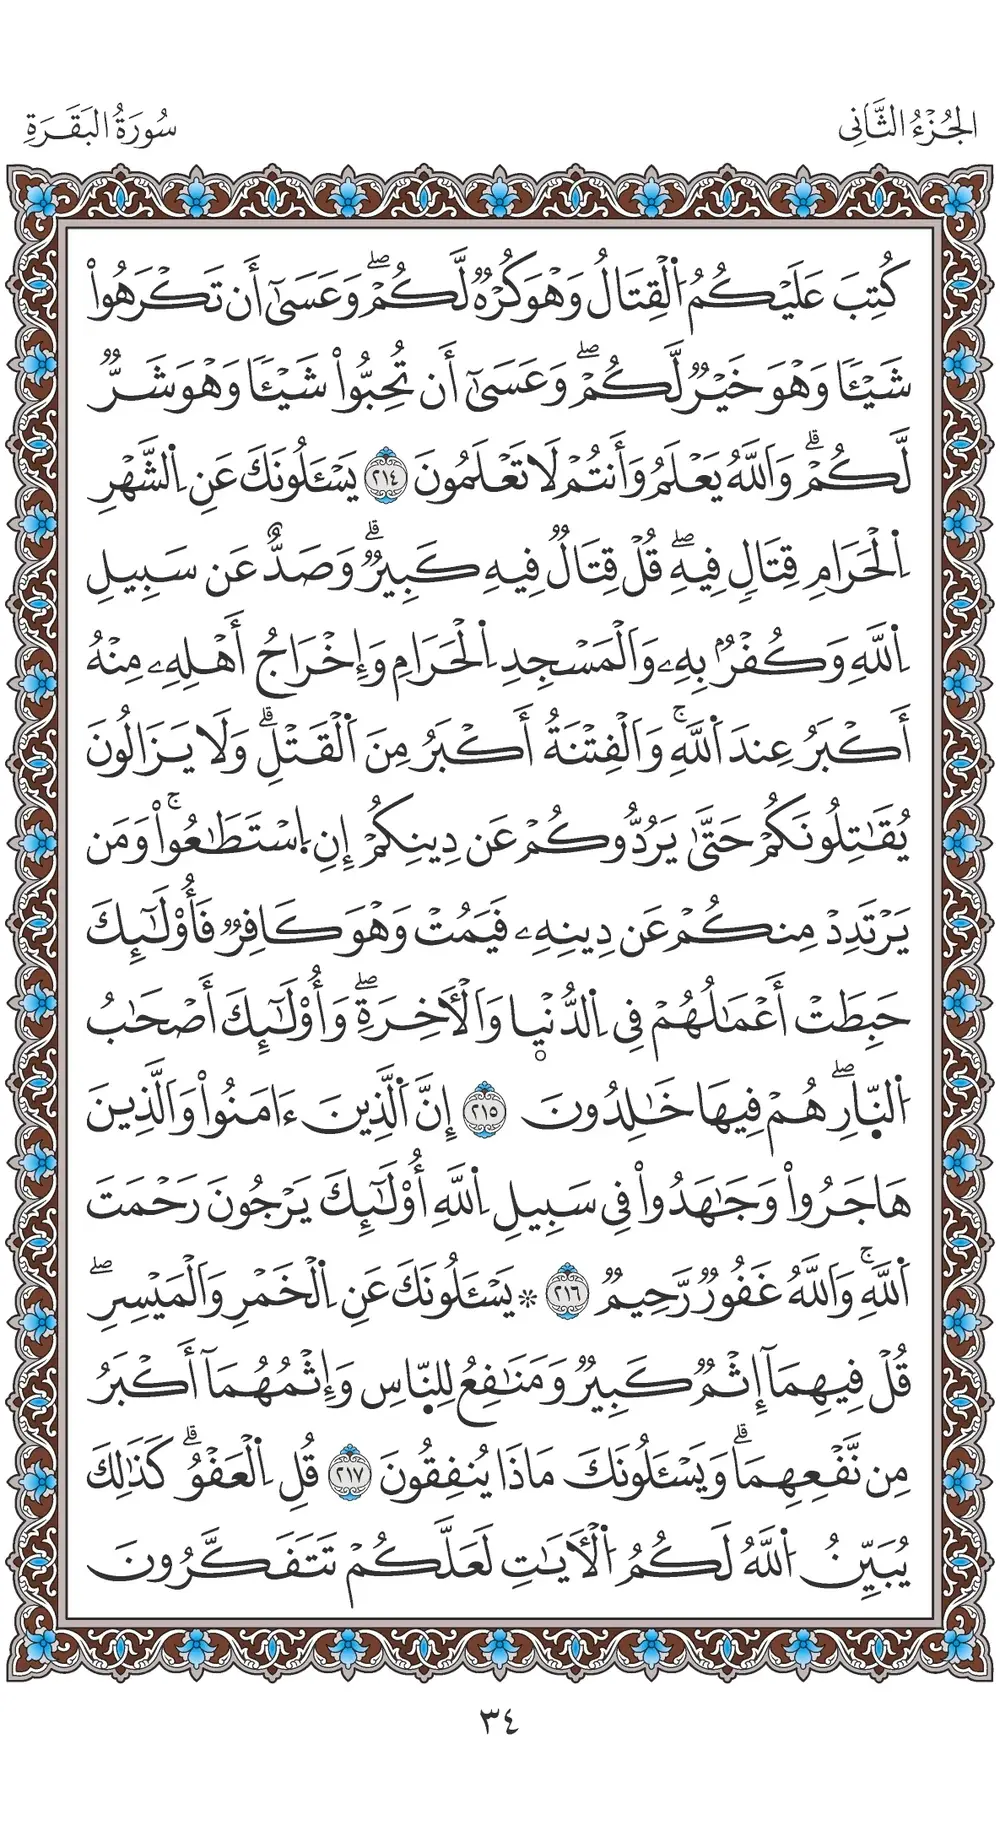 الجُزْءُ الثَّانِي
سُورَةُ البَقَرَةِ
كُتِبَ عَلَيْكُمُ اُ۬لْقِتَالُ وَهْوَ كُرْهٞ لَّكُمْۖ وَعَسَىٰٓ أَن تَكْرَهُواْ
شَيْـٔٗا وَهْوَ خَيْرٞ لَّكُمْۖ وَعَسَىٰٓ أَن تُحِبُّواْ شَيْـٔٗا وَهْوَ شَرّٞ
لَّكُمْۗ وَاَللَّهُ يَعْلَمُ وَأَنتُمْ لَا تَعْلَمُونَ ٢١٤ يَسْـَٔلُونَكَ عَنِ اِ۬لشَّهْرِ
اِ۬لْحَرَامِ قِتَالٖ فِيهِۖ قُلْ قِتَالٞ فِيهِ كَبِيرٞۗ وَصَدٌّ عَن سَبِيلِ
اِ۬للَّهِ وَكُفْرُۢ بِهِۦ وَالْمَسْجِدِ اِ۬لْحَرَامِ وَإِخْرَاجُ أَهْلِهِۦ مِنْهُ
أَكْبَرُ عِندَ اَ۬للَّهِۚ وَالْفِتْنَةُ أَكْبَرُ مِنَ اَ۬لْقَتْلِۗ وَلَا يَزَالُونَ
يُقَٰتِلُونَكُمْ حَتَّىٰ يَرُدُّوكُمْ عَن دِينِكُمْ إِنِ اِ۪سْتَطَٰعُواْۚ وَمَن
يَرْتَدِدْ مِنكُمْ عَن دِينِهِۦ فَيَمُتْ وَهْوَ كَافِرٞ فَأُوْلَٰٓئِكَ
حَبِطَتْ أَعْمَٰلُهُمْ فِي اِ۬لدُّنْيۭا وَاَلْأٓخِرَةِۖ وَأُوْلَٰٓئِكَ أَصْحَٰبُ
اُ۬لنّ۪ارِۖ هُمْ فِيهَا خَٰلِدُونَ ٢١٥ إِنَّ اَ۬لَّذِينَ ءَامَنُواْ وَاَلَّذِينَ
هَاجَرُواْ وَجَٰهَدُواْ فِي سَبِيلِ اِ۬للَّهِ أُوْلَٰٓئِكَ يَرْجُونَ رَحْمَتَ
اَ۬للَّهِۚ وَاَللَّهُ غَفُورٞ رَّحِيمٞ ٢١٦ ۞ يَسْـَٔلُونَكَ عَنِ اِ۬لْخَمْرِ وَاَلْمَيْسِرِۖ
قُلْ فِيهِمَآ إِثْمٞ كَبِيرٞ وَمَنَٰفِعُ لِلنّ۪اسِ وَإِثْمُهُمَآ أَكْبَرُ
مِن نَّفْعِهِمَاۗ وَيَسْـَٔلُونَكَ مَاذَا يُنفِقُونَ ٢١٧ قُلِ اِ۬لْعَفْوُۗ كَذَٰلِكَ
يُبَيِّنُ اُ۬للَّهُ لَكُمُ اُ۬لْأٓيَٰتِ لَعَلَّكُمْ تَتَفَكَّرُونَ
٣٤